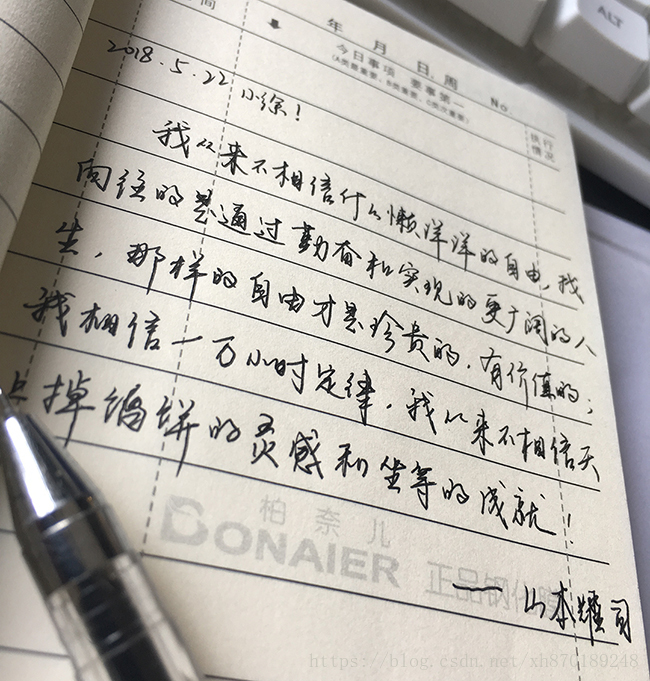 ALT
间
年 月 日 周 No.
今日事项 要事第一
(A类最重要、B类重要、C类次重要)
执行
情况
2018.5.22 小徐!
我从来不相信什么懒洋洋的自由,我
向往的是通过勤奋和实现的更广阔的人
生,那样的自由才是珍贵的,有价值的;
我相信一万小时定律,我从来不相信天
上掉馅饼的灵感和坐等的成就!
柏奈儿
BONAIER 正品钢化膜
— 山本耀司
https://blog.csdn.net/xh870189248